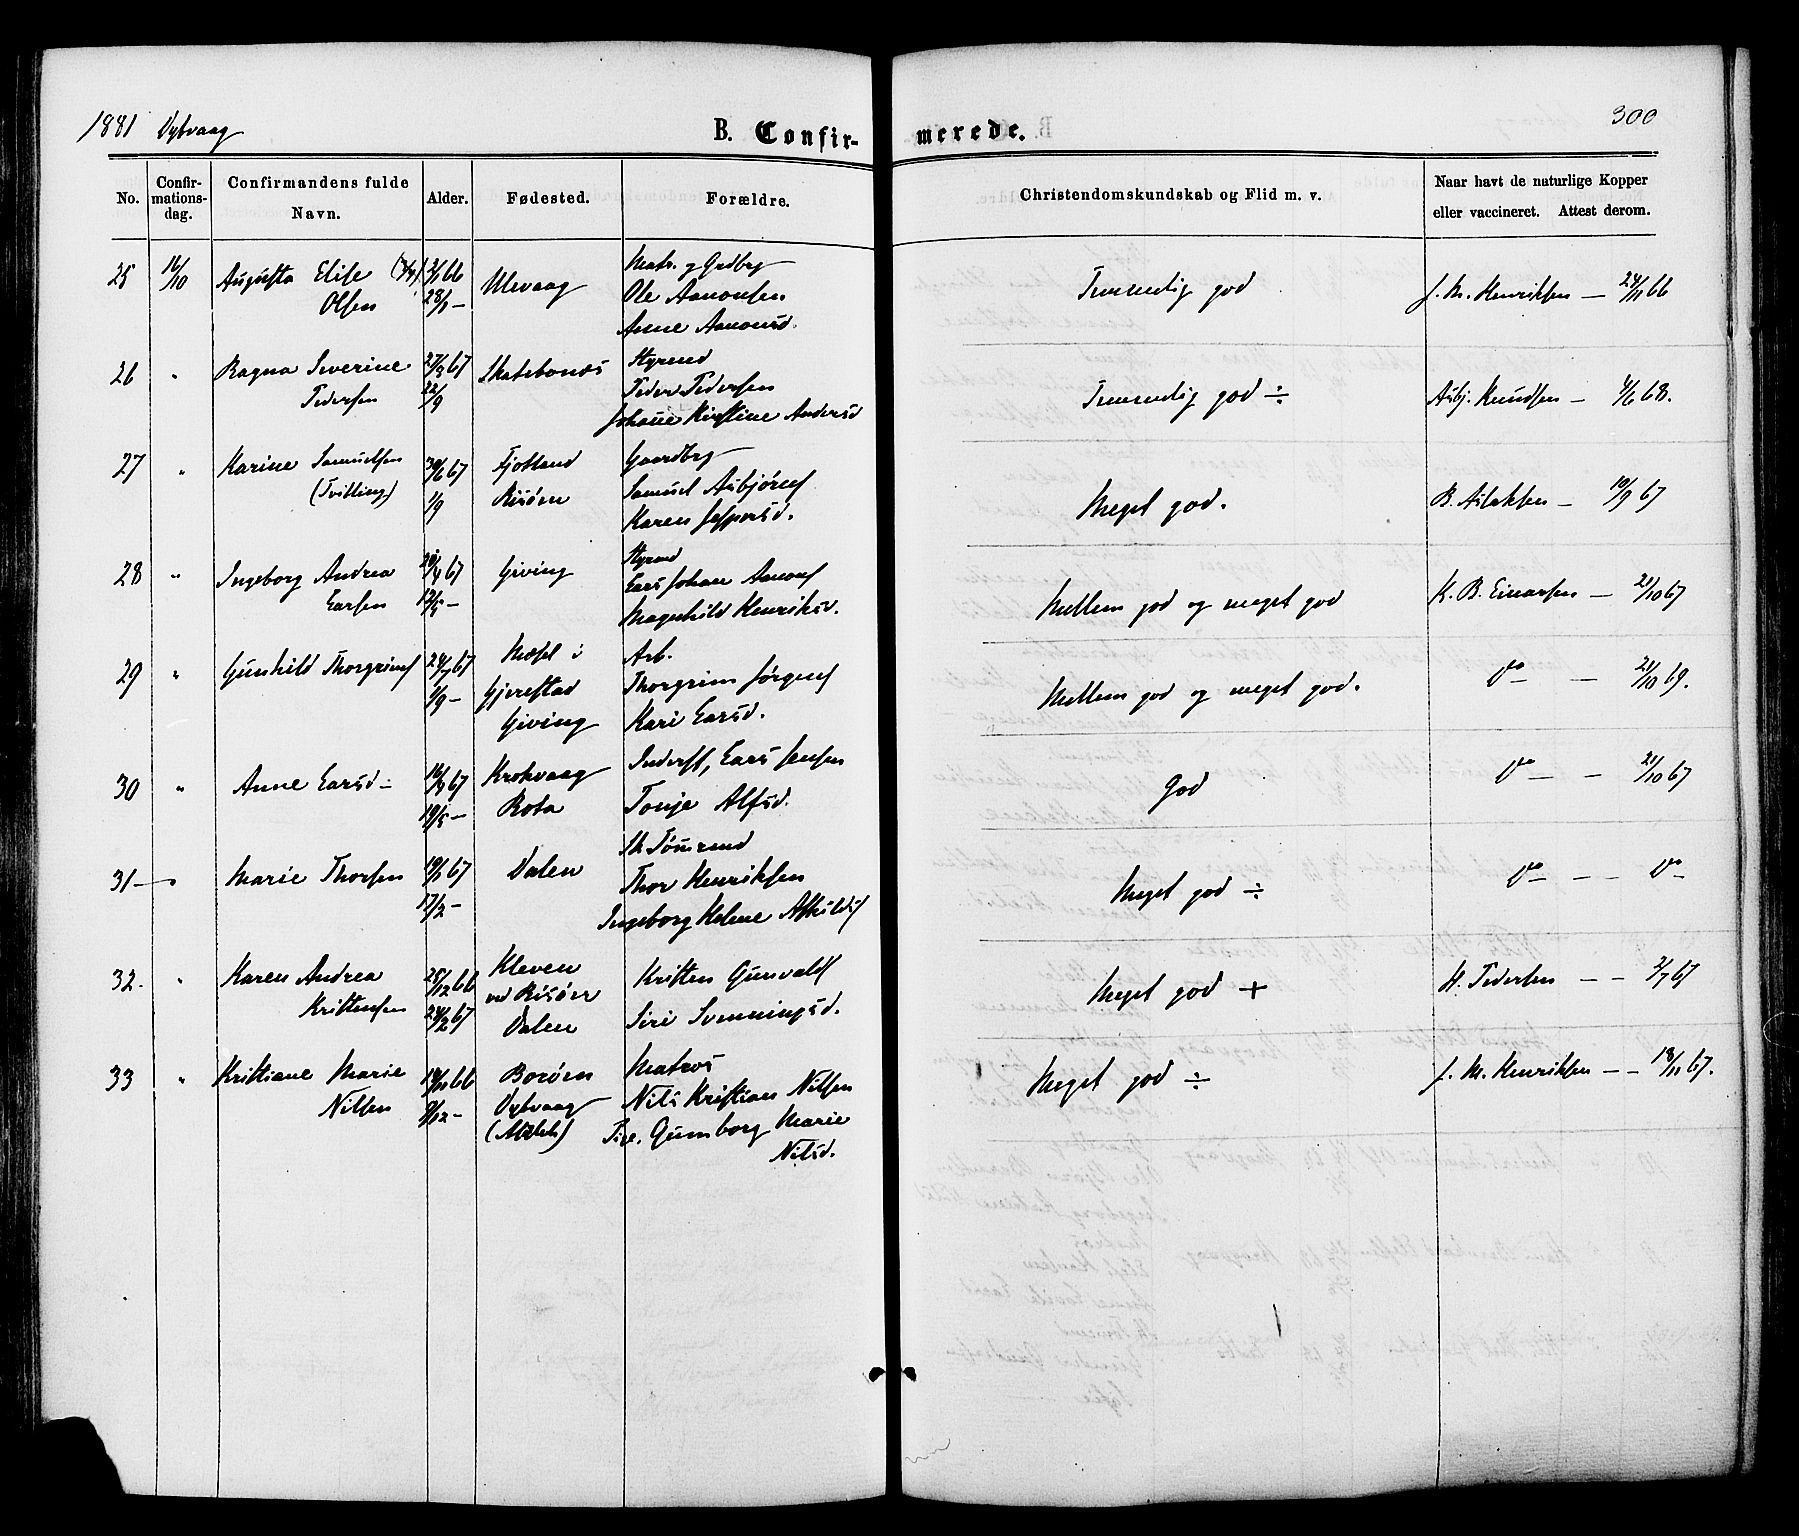 1881 Dybvaag
B. Confir-
merede.
300
No.
Confir-
mations-
dag.
Confirmandens fulde
Navn.
Alder.
Fødested.
Forældre.
Christendomskundskab og Flid m. v.
Naar havt de naturlige Kopper
eller vaccineret. Attest derom.
25 16/10 Augusta Elise
Olsen
Ulevaag
Matr. og Grdbrg
Ole Aanonsen
Anne Aanonsd.
Temmelig god
J. M. Henriksen — 24/11 66
26 " Ragna Severine
Pedersen
27/3 67
22/9
Skatebonæs
Styrmd
Peder Pedersen
Johanne Kirstine Andersd
Temmelig god ÷
Asbj. Knudsen — 4/6 68.
27 " Karine Samuelsen
(Tvilling)
30/6 67
1/9
Fjotland
Risøen
Gaardbrg
Samuel Asbjørns
Karen Jespersd.
Meget god.
B. Aslaksen — 10/9 67
28 " Ingeborg Andrea
Larsen
12/5 —
Giving
Styrmd
Lars Johan Aanons
Magnhild Henriksd.
Mellem god og meget god
K. B. Einarsen — 21/10 67
29 " Gunhild Thorgrims
24/7 67
1/9 —
Gjerestad
Giving
Arb.
Thorgrim Jørgens
Kari Larsd.
Mellem god og meget god.
Do — 21/10 69.
30 " Anne Larsd —
19/5 —
Krokvaag
Rota
Inderst, Lars Jensen
Tonje Alfsd.
God
Do — — 21/10 67
31 — " Marie Thorsen
19/1 67
17/2 —
Dalen
Sk. Tømrmd
Thor Henriksen
Ingeborg Helene
Meget god ÷
Do — — Do
32 - " Karen Andrea
Kristensen
25/12 66
24/2 67
Kleven
ved Risøer
Dalen
Kristen Gunvalds
Siri Svenningsd.
Meget god +
H. Pedersen — — 2/7 67
33 " Kristiane Marie
Nilsen
19/11 66
9/12 —
Borøen
Dybvaag
Matros
Nils Kristian Nilsen
Pige. Gumborg Marie
Nilsd.
Meget god ÷
J. M. Henriksen — - 18/11 67.